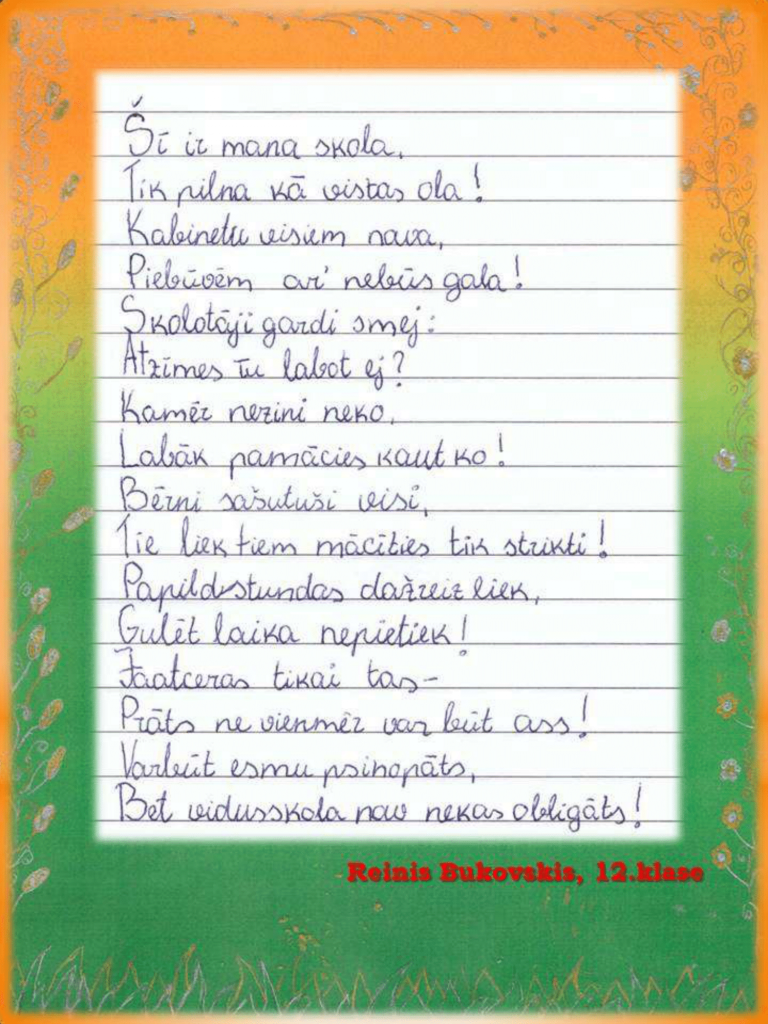 Šī ir mana skola,
Tik pilna kā vistas ola!
Kabinetu visiem nava,
Piebūvēm arī nebūs gala!
Skolotāji gardi smej:
Atzīmes tu labot ej?
Kamēr nezini neko,
Labāk pamācies kaut ko!
Bērni sašutuši visi,
Tie liek tiem mācīties tik strikti!
Papildstundas dažreiz liek,
Gulēt laika nepietiek!
Jāatceras tikai tas-
Prāts ne vienmēr var būt ass!
Varbūt esmu psihopāts,
Bet vidusskola nav nekas obligāts!
Reinis Bukovskis, 12.klase